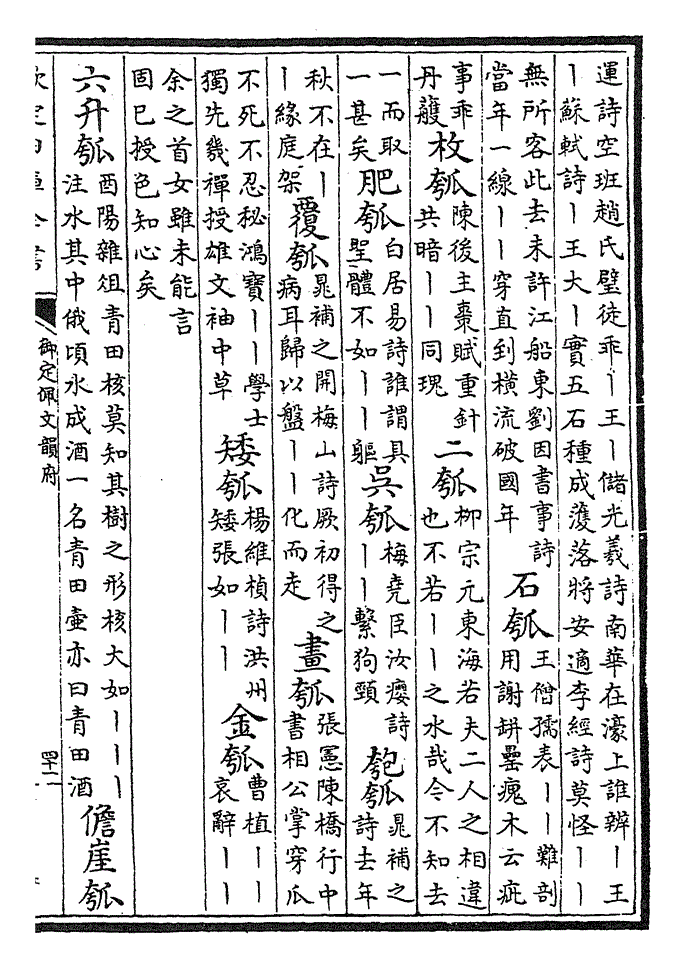 運詩空班趙氏璧徒乖丨王丨儲光羲詩南華在濠上誰辨丨王
丨蘇軾詩丨王大丨實五石種成濩落將安適李經詩莫怪丨丨
無所容此去未許江船東劉因書事詩
當年一線丨丨穿直到橫流破國年
石瓠
王僧孺表丨丨難剖
用謝缾罍瘣木云疵
事乖
丹雘
枚瓠
陳後主棗賦重針
共暗丨丨同瑰
二瓠
柳宗元東海若夫二人之相違
也不若丨丨之水哉今不知去
一而取
一甚矣
肥瓠
白居易詩誰謂具
聖體不如丨丨軀
吳瓠
梅堯臣汝癭詩
丨丨繫狗頸
匏瓠
晁補之
詩去年
秋不在丨
丨緣庭架
覆瓠
晁補之開梅山詩厥初得之
病耳歸以盤丨丨化而走
畫瓠
張憲陳橋行中
書相公掌穿瓜
不死不忍秘鴻寶丨丨學士
獨先幾禪授雄文袖中草
矮瓠
楊維楨詩洪州
矮張如丨丨
金瓠
曹植丨丨
哀辭丨丨
余之首女雖未能言
固已授色知心矣
六升瓠
酉陽雜俎青田核莫知其樹之形核大如丨丨丨
注水其中俄頃水成酒一名青田壷亦曰青田酒
儋崖瓠
欽定四庫全書
御定佩文韻府
四十二